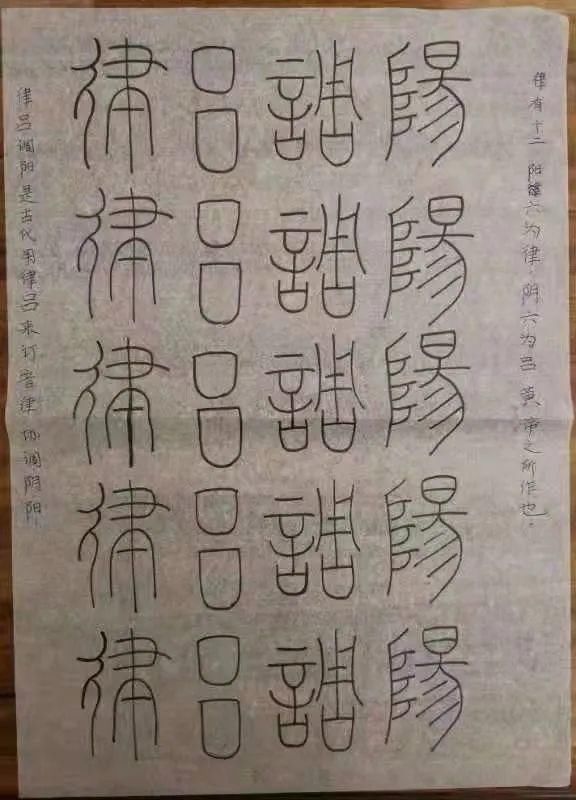 律有十二 阳律六为律,阴六为吕 黄帝之所作也。
律吕調陽
律吕調陽
律吕調陽
律吕調陽
律吕調陽
律吕调阳是古代用律吕来订音律 协调阴阳。